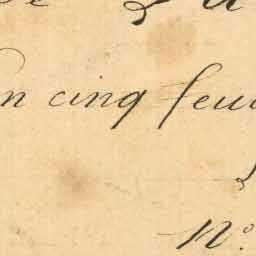 n cinq feui
n°